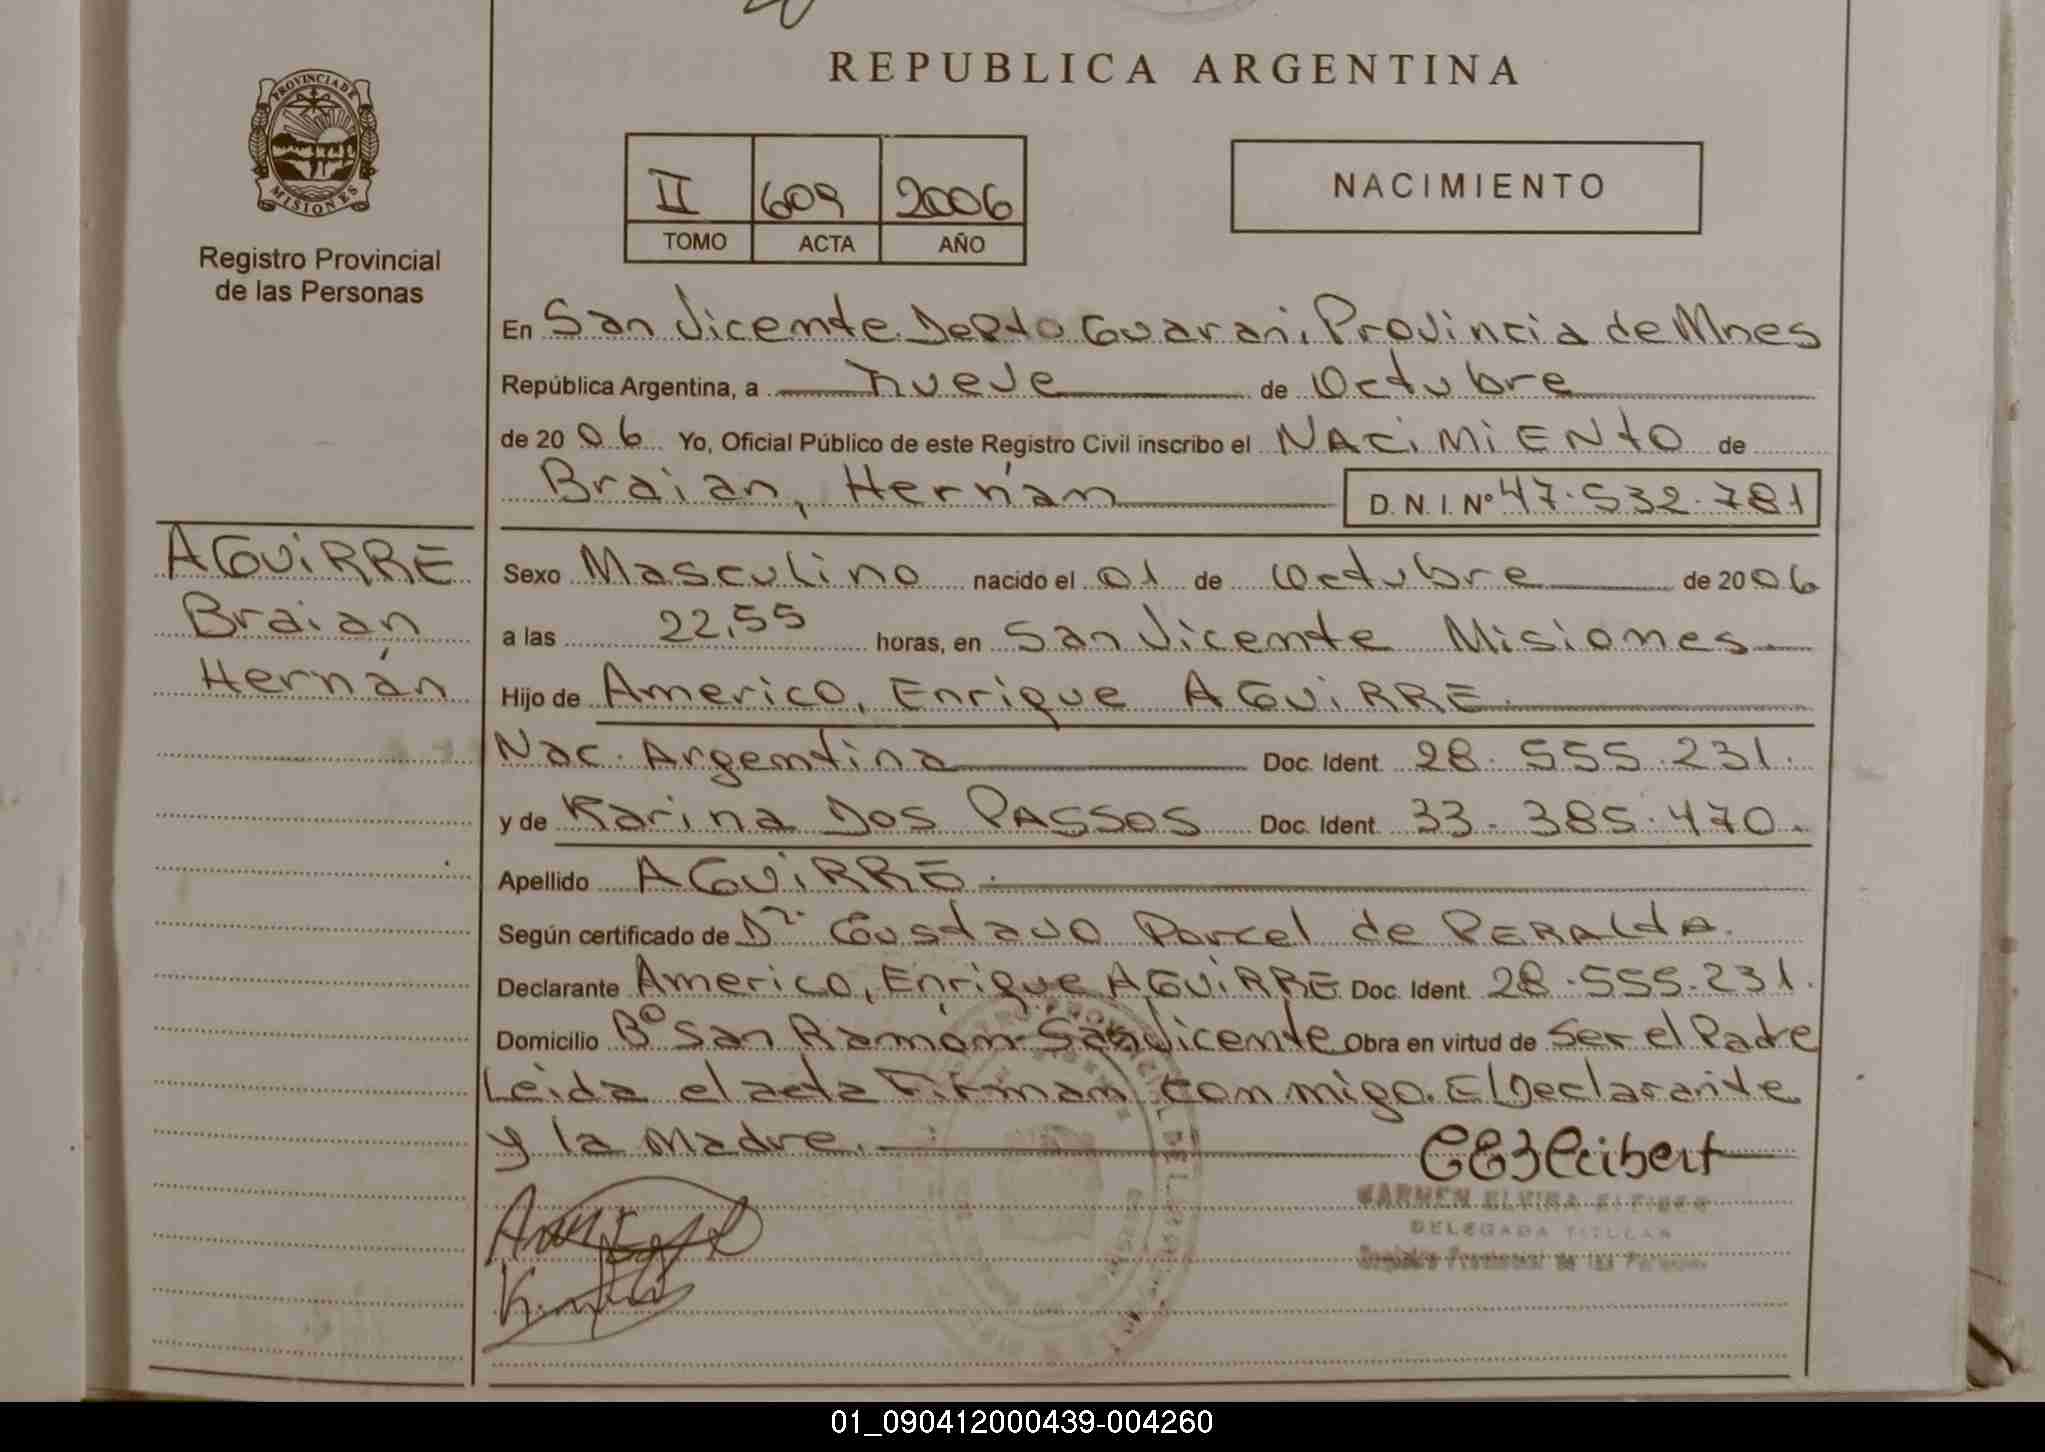 REPUBLICA ARGENTINA
PROVINCIA DE
MISIONES
Registro Provincial
de las Personas
II 609 2006
TOMO ACTA AÑO
NACIMIENTO
En San Vicente. Depto Guarani, Provincia de Mnes
República Argentina, a nueve de Octubre
de 2006 Yo, Oficial Público de este Registro Civil inscribo el NACIMIENTO de
Braian, Hernán D.N.I. Nº 47.532.781
AGUIRRE
Braian
Hernán
Sexo Masculino nacido el 01 de Octubre de 2006
a las 22,55 horas, en San Vicente Misiones
Hijo de Americo, Enrique AGUIRRE
Nac. Argentina Doc. Ident. 28.555.231.
y de Karina DOS PASSOS Doc. Ident. 33.385.470.
Apellido AGUIRRE.
Según certificado de Dr. Gustavo Porcel de PERALTA.
Declarante Americo, Enrique AGUIRRE Doc. Ident. 28.555.231.
Domicilio Bº San Ramón San Vicente Obra en virtud de Ser el Padre
Leida el acta Firman conmigo. El Declarante
y la Madre.
CARMEN ELVIRA
DELEGADA TITULAR
Registro Provincial de las Personas
01_090412000439-004260